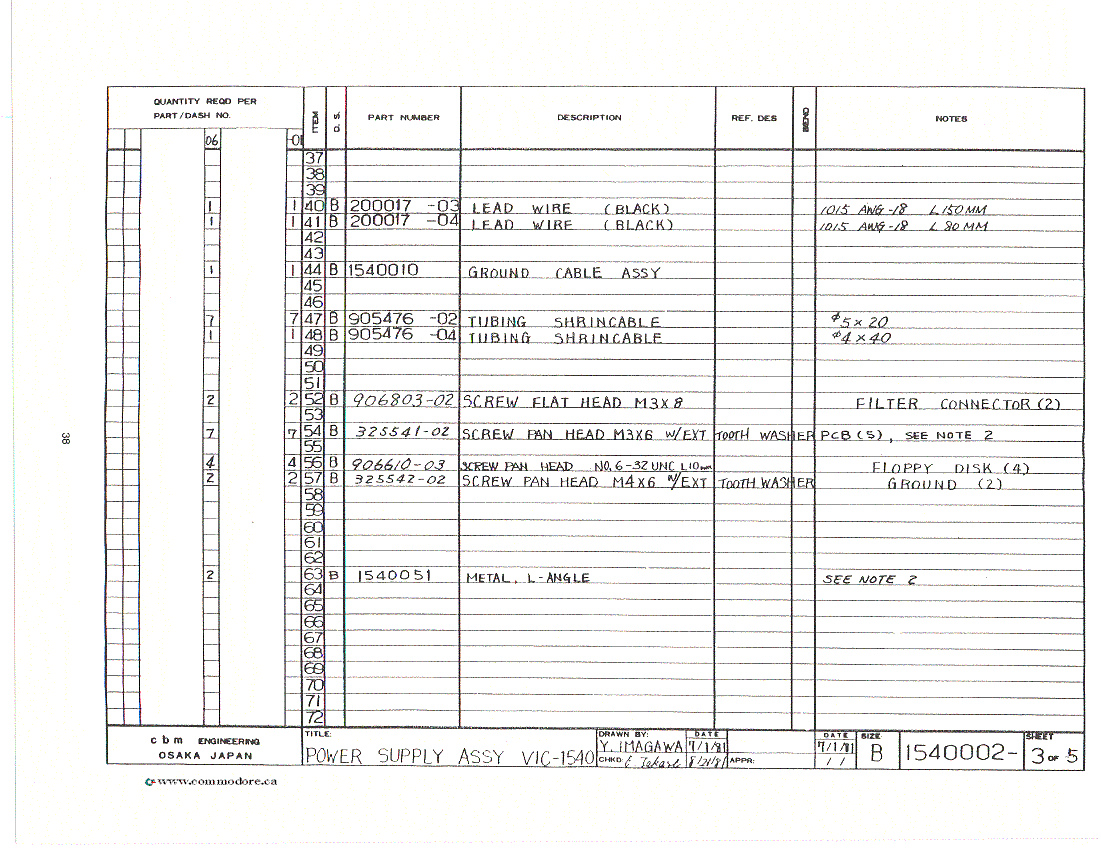 QUANTITY REQD PER
PART/DASH NO.
06 -01 ITEM D. S. PART NUMBER DESCRIPTION REF. DES BEND NOTES
37
38
39
1 1 40 B 200017 -03 LEAD WIRE (BLACK) 1015 AWG-18 L 150 MM
1 1 41 B 200017 -04 LEAD WIRE (BLACK) 1015 AWG-18 L 80 MM
42
43
1 1 44 B 1540010 GROUND CABLE ASSY
45
46
7 7 47 B 905476 -02 TUBING SHRINCABLE ø5 x 20
1 1 48 B 905476 -04 TUBING SHRINCABLE ø4 x 40
49
50
51
2 2 52 B 906803-02 SCREW FLAT HEAD M3X8 FILTER CONNECTOR (2)
53
7 7 54 B 325541-02 SCREW PAN HEAD M3X6 W/EXT TOOTH WASHER PCB (5), SEE NOTE 2
55
4 4 56 B 906610-03 SCREW PAN HEAD NO, 6-32 UNC L10mm FLOPPY DISK (4)
2 2 57 B 325542-02 SCREW PAN HEAD M4X6 W/EXT TOOTH WASHER GROUND (2)
58
59
60
61
62
2 63 B 1540051 METAL, L-ANGLE SEE NOTE 2
64
65
66
67
68
69
70
71
72
38
cbm ENGINEERING
OSAKA JAPAN
TITLE:
POWER SUPPLY ASSY VIC-1540
DRAWN BY: DATE
Y. IMAGAWA 7/1/81
CHKD: 8/21/81 APPR:
DATE
7/1/81
/ /
SIZE
B
1540002-
SHEET
3 OF 5
www.commodore.ca